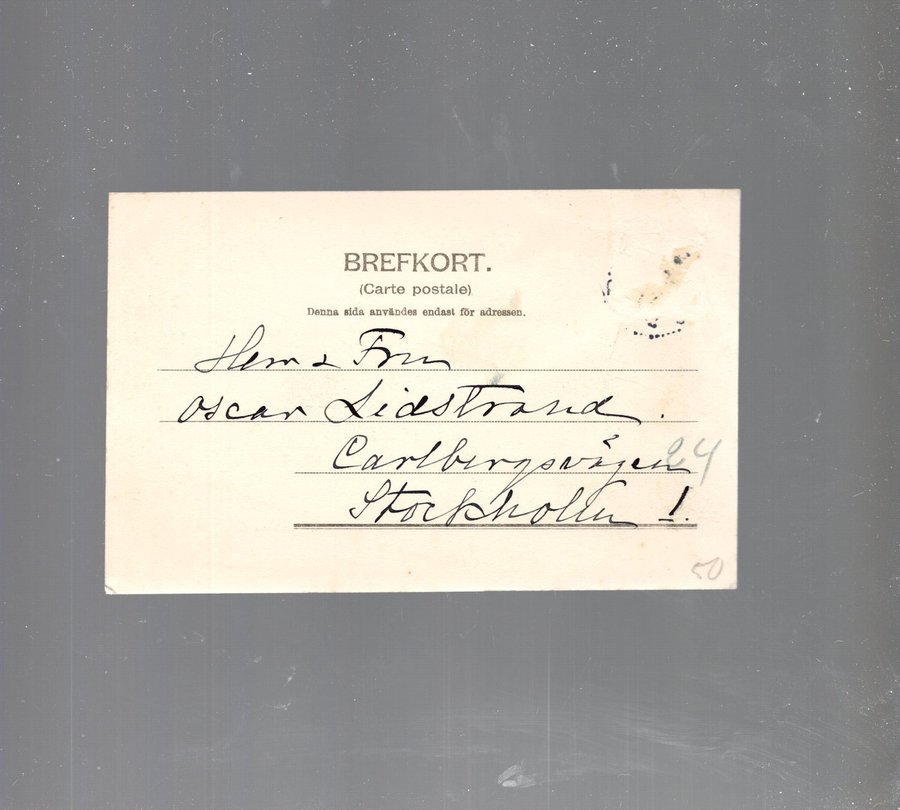 BREFKORT.
(Carte postale)
Denna sida användes endast för adressen.
Herr & Fru
Oscar Lidstrand.
Carlbergsvägen 24
Stockholm 1.
50